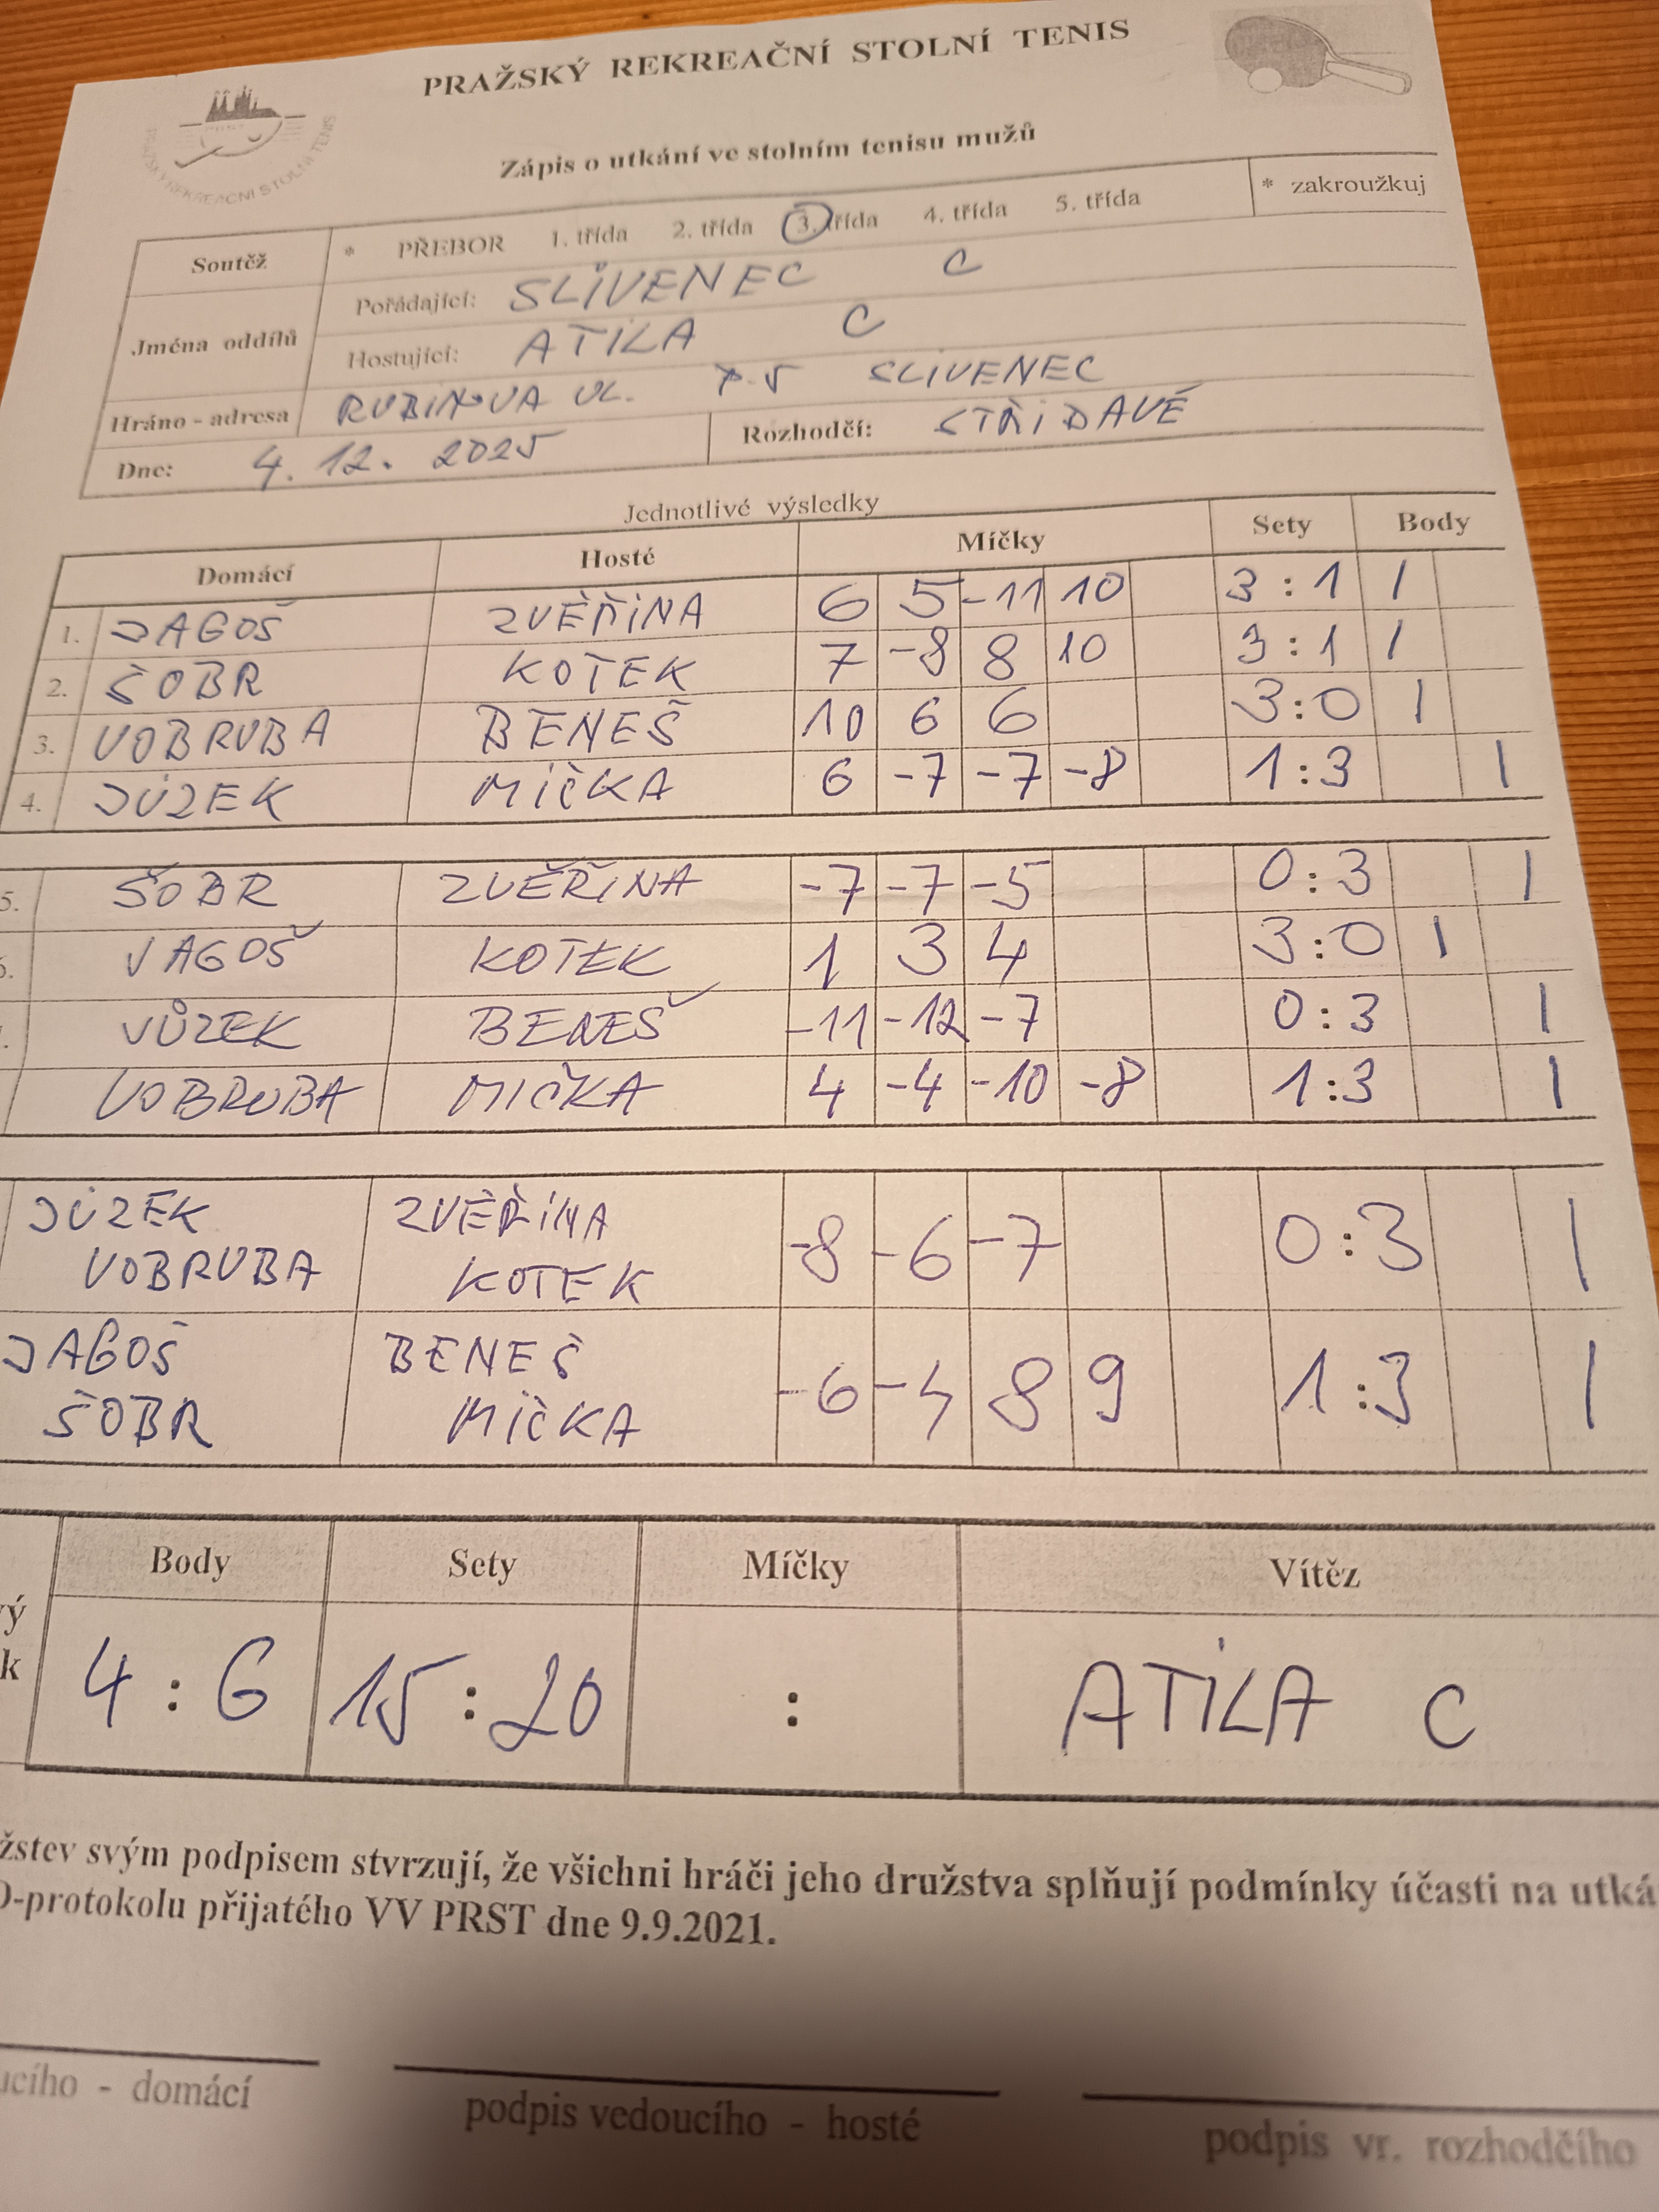 PRAŽSKÝ REKREAČNÍ STOLNÍ TENIS
Zápis o utkání ve stolním tenisu mužů
Soutěž * PŘEBOR 1. třída 2. třída 3. třída 4. třída 5. třída * zakroužkuj
Jména oddílů
Pořádající: SLIVENEC C
Hostující: ATILA C
Hráno - adresa RUBINOVA UL. P-5 SLIVENEC
Dne: 4. 12. 2025 Rozhodčí: STŘIDAVĚ
Jednotlivé výsledky
Domácí Hosté Míčky Sety Body
1. JAGOŠ ZVĚŘINA 6 5 -11 10 3 : 1 1
2. ŠOBR KOTEK 7 -8 8 10 3 : 1 1
3. VOBRUBA BENEŠ 10 6 6 3:0 1
4. JŮZEK MIČKA 6 -7 -7 -8 1:3 1
5. ŠOBR ZVĚŘINA -7 -7 -5 0:3 1
JAGOŠ KOTEK 1 3 4 3:0 1
JŮZEK BENEŠ -11 -12 -7 0:3 1
VOBRUBA MIČKA 4 -4 -10 -8 1:3 1
JŮZEK ZVĚŘINA
VOBRUBA KOTEK -8 -6 -7 0:3 1
JAGOŠ BENEŠ
ŠOBR MIČKA -6 -4 8 9 1:3 1
Body Sety Míčky Vítěz
4 : 6 15 : 20 : ATILA C
žstev svým podpisem stvrzují, že všichni hráči jeho družstva splňují podmínky účasti na utká
-protokolu přijatého VV PRST dne 9.9.2021.
ucího - domácí podpis vedoucího - hosté podpis vr. rozhodčího